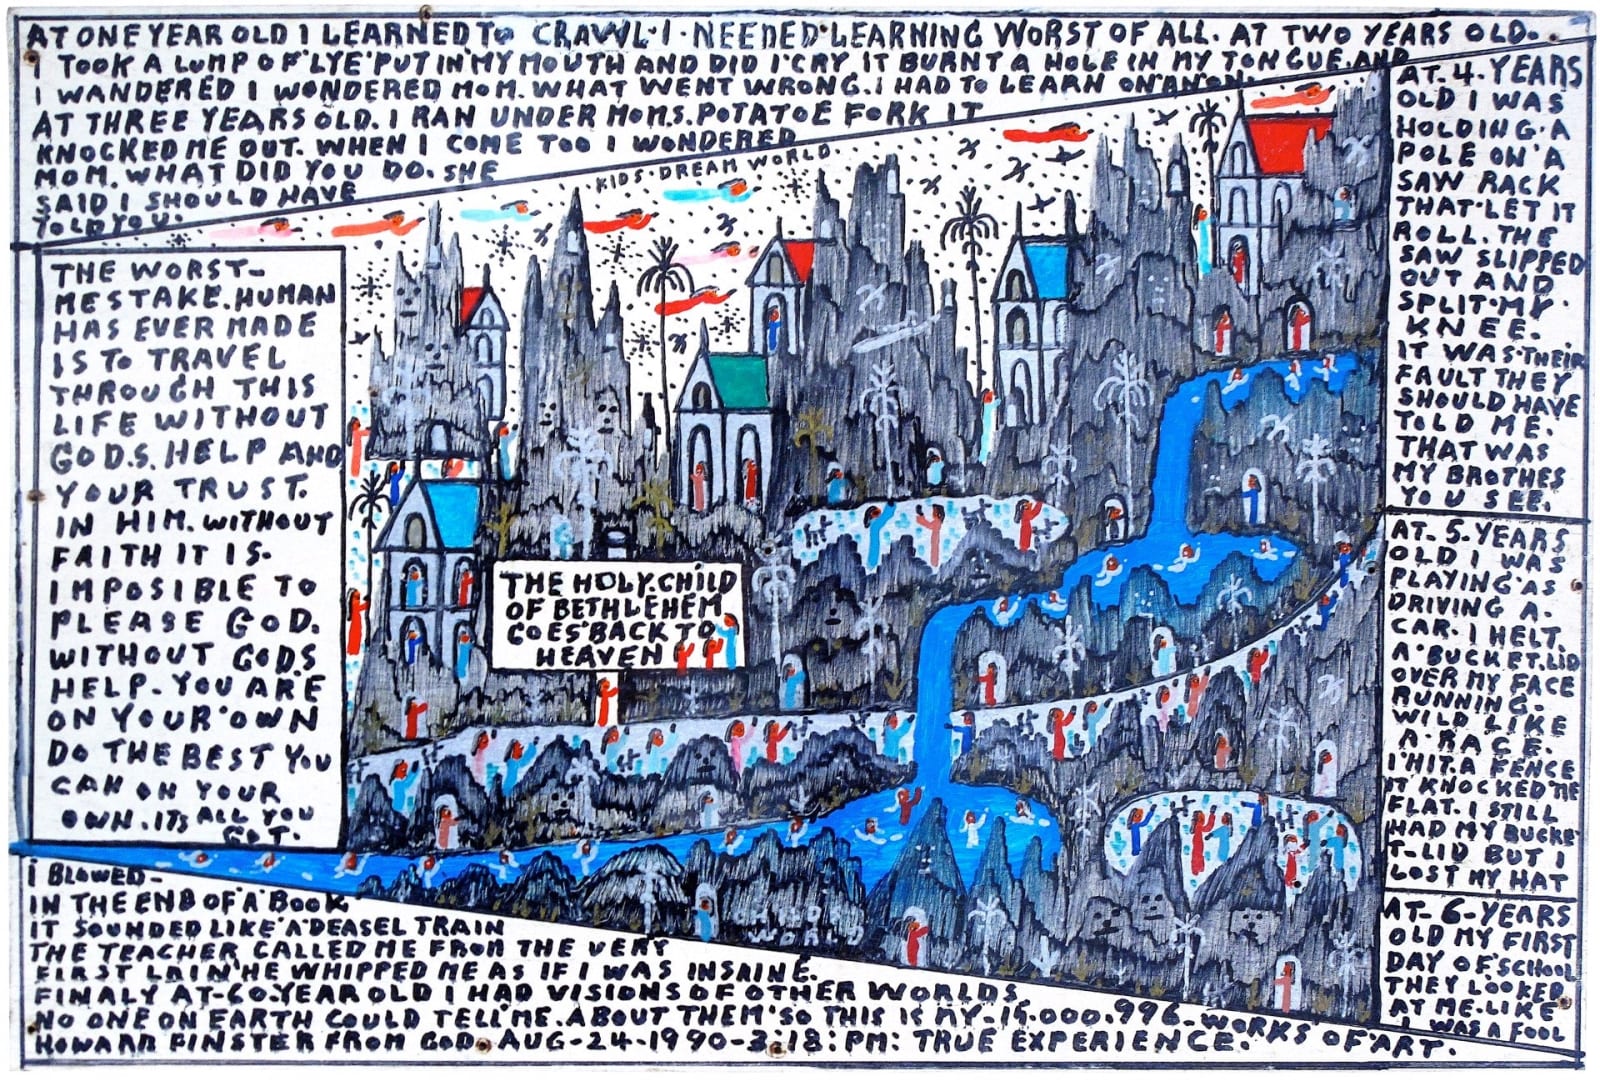 AT ONE YEAR OLD I LEARNED To CRAWL. I. NEENED. LEARNING WORST OF ALL. AT TWO YEARS OLD.
I TOOK A LUMP OF LYE PUT IN MY MOUTH AND DID I CRY IT BURNT A HOLE IN MY TONGUE. AND
I WANDERED I WONDERED MOM. WHAT WENT WRONG. I HAD TO LEARN ON AN ON.
AT THREE YEARS OLD. I RAN UNDER MOM.S. POTATOE FORK IT
KNOCKED ME OUT. WHEN I COME TOO I WONDERED
MOM. WHAT DID YOU DO. SHE
SAID I SHOULD HAVE
TOLD YOU.
KIDS. DREAM WORLD.
THE WORST-
MESTAKE. HUMAN
HAS EVER MADE
IS TO TRAVEL
THROUGH THIS
LIFE WITHOUT
GOD.S. HELP AND
YOUR TRUST.
IN HIM. WITHOUT
FAITH IT IS.
IMPOSIBLE TO
PLEASE GOD.
WITHOUT GODS
HELP. YOU ARE
ON YOUR OWN
DO THE BEST YOU
CAN ON YOUR
OWN. ITS ALL YOU
GOT.
THE HOLY. CHILD
OF BETHLEHEM
GOES BACK TO
HEAVEN
AT. 4. YEARS
OLD I WAS
HOLDING. A
POLE ON A
SAW RACK
THAT LET IT
ROLL. THE
SAW SLIPPED
OUT AND
SPLIT. MY
KNEE.
IT WAS THEIR
FAULT THEY
SHOULD HAVE
TOLD ME.
THAT WAS
MY BROTHES
YOU SEE.
AT. 5. YEARS
OLD I WAS
PLAYING AS
DRIVING A.
CAR. I HELT.
A BUCKET. LID
OVER MY FACE
RUNNING.
WILD LIKE
A. RACE.
I HIT. A FENCE
IT KNOCKED ME
FLAT. I STILL
HAD MY BUCKE
T-LID BUT I
LOST MY HAT
AT-6-YEARS
OLD MY FIRST
DAY OF SCHOOL
THEY LOOKED
AT ME. LIKE
I WAS A FOOL
I BLOWED-
IN THE END OF A BOOK
IT SOUNDED LIKE A DEASEL TRAIN
THE TEACHER CALLED ME FROM THE VERY
FIRST LAIN HE WHIPPED ME AS IF I WAS INSAINE.
FINALY AT-60. YEAR OLD I HAD VISIONS OF OTHER WORLDS
NO ONE ON EARTH COULD TELL ME. ABOUT THEM SO THIS IS MY-15.000.996-WORKS OF ART.
HOWARD FINSTER FROM GOD. AUG-24-1990-3:18: PM: TRUE EXPERIENCE.